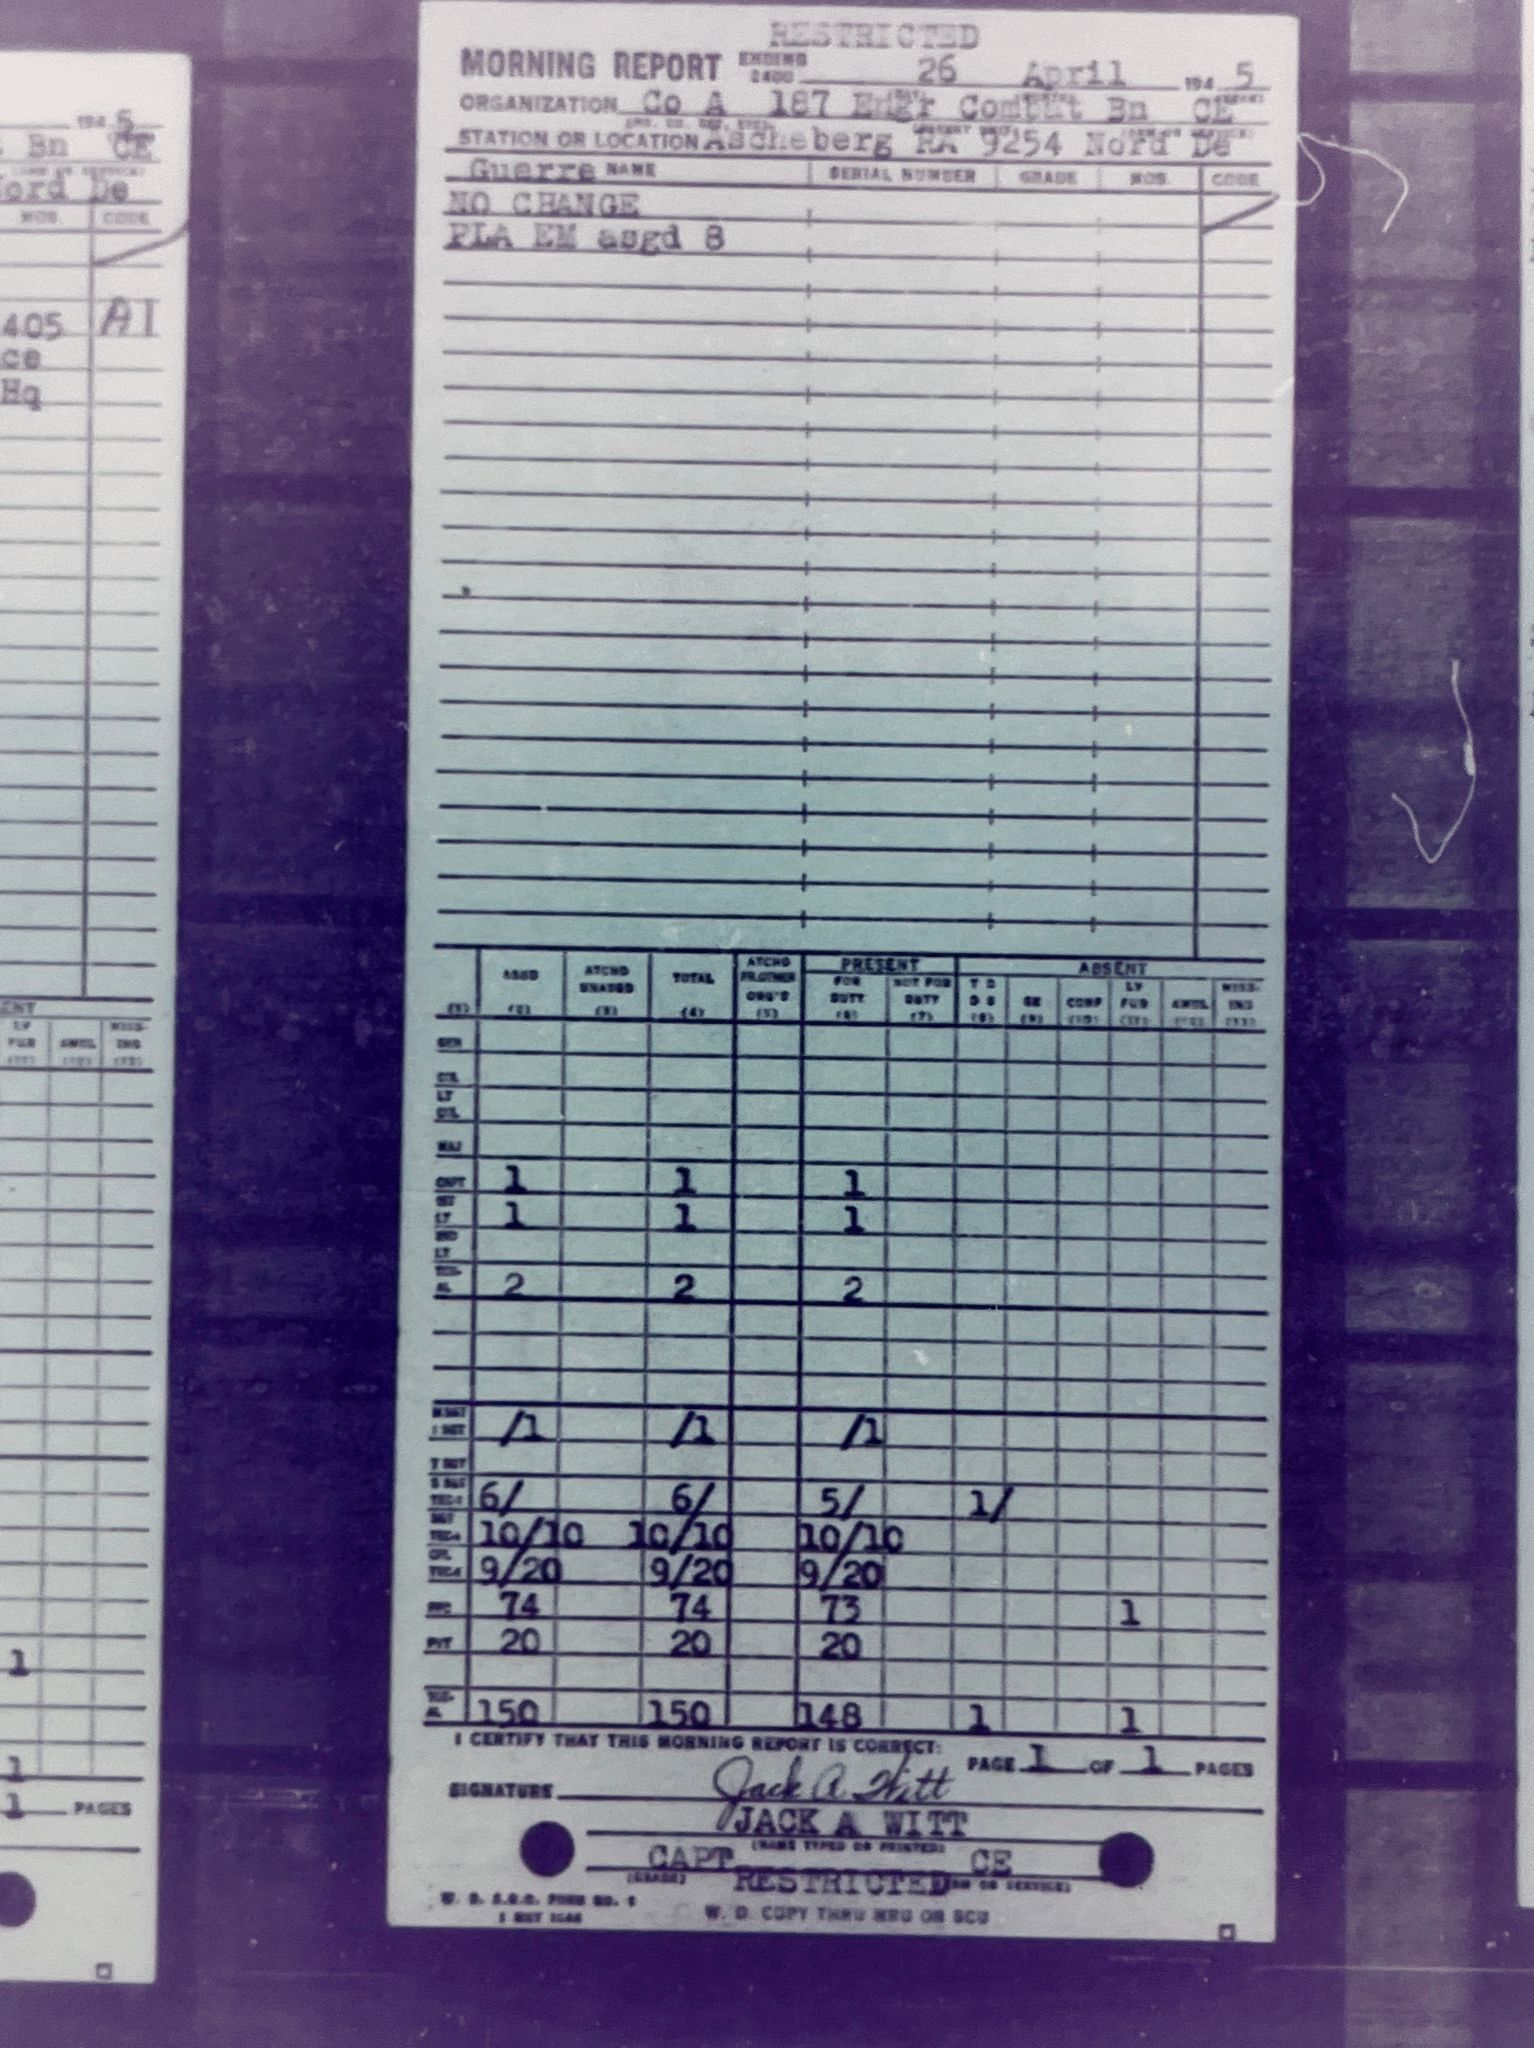 RESTRICTED
MORNING REPORT ENDING 2400 26 April 194 5
ORGANIZATION Co A 187 Engr Combat Bn CE
STATION OR LOCATION Ascheberg RA 9254 Nord De
Guerre NAME SERIAL NUMBER GRADE MOS. CODE
NO CHANGE
PLA EM asgd 8
ASGD ATCHD UNASGD TOTAL ATCHD FR OTHER ORG'S PRESENT FOR DUTY NOT FOR DUTY ABSENT T D D S SK CONF LV FUR AWOL MISS-ING
(1) (2) (3) (4) (5) (6) (7) (8) (9) (10) (11) (12) (13)
GEN
COL
LT COL
MAJ
CAPT 1 1 1
1ST LT 1 1 1
2ND LT
TOT-AL 2 2 2
M SGT 1 SGT /1 /1 /1
T SGT
S SGT TEC-3 6/ 6/ 5/ 1/
SGT TEC-4 10/10 10/10 10/10
CPL TEC-5 9/20 9/20 9/20
PFC 74 74 73 1
PVT 20 20 20
TOT-AL 150 150 148 1 1
I CERTIFY THAT THIS MORNING REPORT IS CORRECT: PAGE 1 OF 1 PAGES
SIGNATURE Jack A. Witt
JACK A WITT
(NAME TYPED OR PRINTED)
CAPT CE
(GRADE) RESTRICTED (ARM OR SERVICE)
W. D. A.G.O. FORM NO. 1
W. D. COPY THRU MRU OR SCU
194 5
Bn CE
Nord De
MOS. CODE
405 A1
ce
Hq
LV FUR AWOL MISS-ING
1
1
1 PAGES